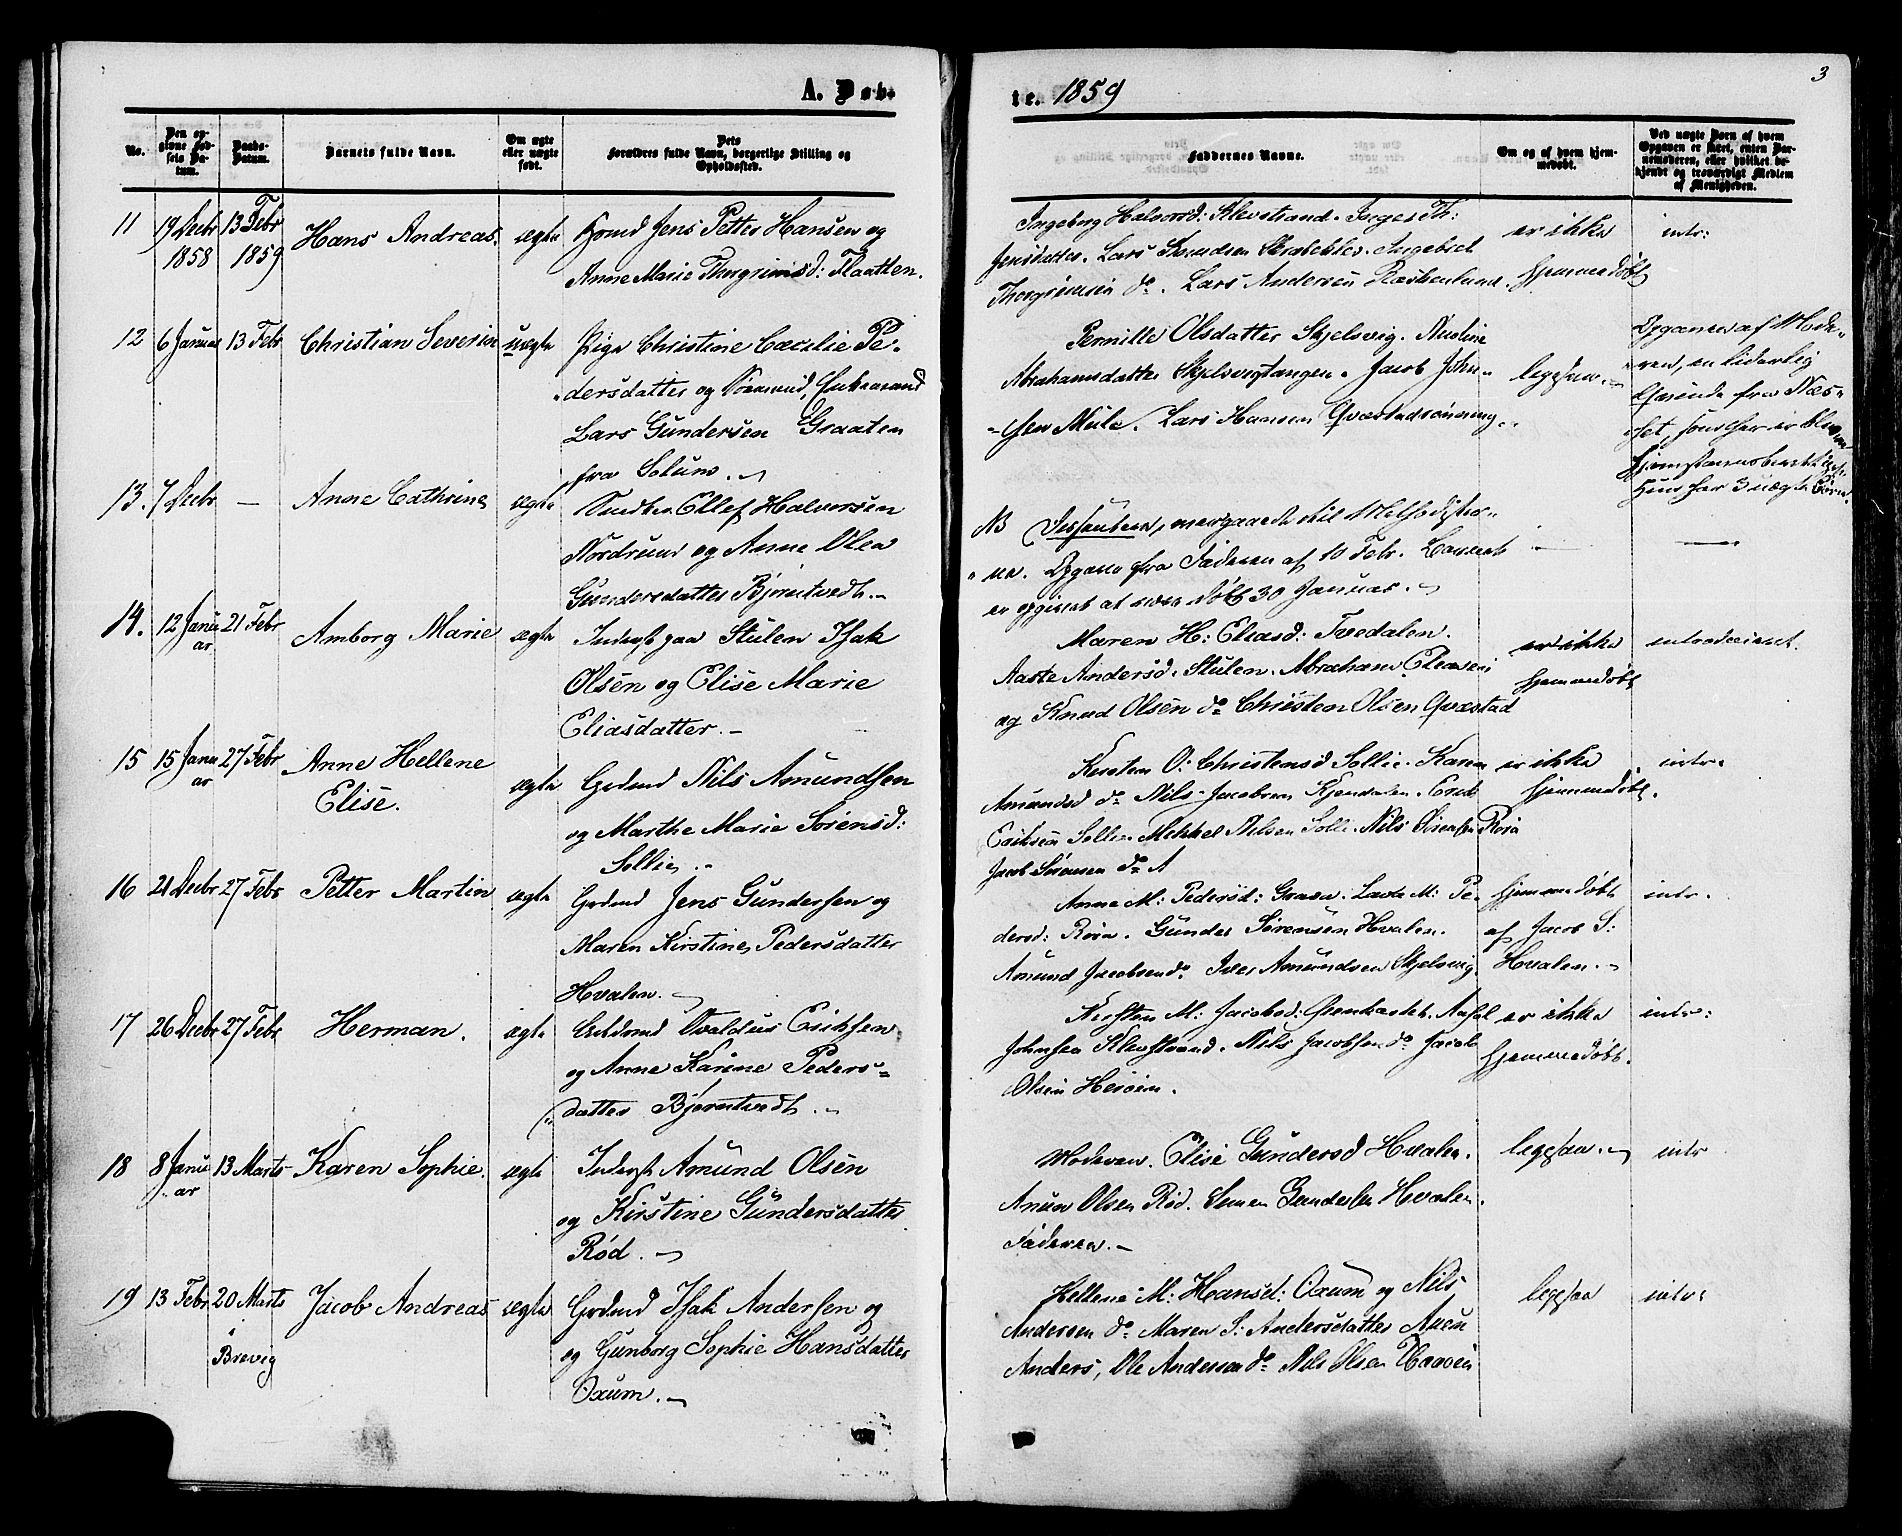 A. Døb-
te. 1859
3
No.
Den opgivne Fødsels Datum.
Daabs-Datum.
Barnets fulde Navn.
Om ægte eller uægte født.
Dets Forældres fulde Navn, borgerlige Stilling og Opholdssted.
Faddernes Navne.
Om og af hvem hjemmedøbt.
Ved uægte Born af hvem Opgaven er skeet, enten Barnemoderen, eller hvilket bekjendt og troværdigt Medlem af Menigheden.
11 19 Decbr 13 Febr Hans Andreas. ægte Jens Petter Hansen og
1858 1859 Anne Marie Thorgrimsd: Flaatten.
Ingeborg Halvorsd: Klevstrand. Inger Th:
Jensdatter. Lars Knudsen Ingebret
Thorgrimsen do. Lars Andersen
er ikke
hjemmedøbt
intr:
12 6 Januar 13 Febr Christian Severin uægte Pige Christine Cæcilie Pe-
dersdatter og Enkemand
Lars Gundersen Graaten
fra Solum.
Pernille Olsdatter Skjelsvig.
Abrahamsdatter Skjelsvigtangen. Jacob John-
sen Mule. Lars Hansen
ligesaa.
Opgaven af Mode-
ren, en liderlig
fra Næs-
set, som her er
Hun har 3 uægte Børn.
13. 7 Decbr - Anne Cathrine ægte Ellef Halvorsen
Nordrum og Anne Olea
Gundersdatter Bjørntvedt.
NB til Methodister-
ne. Opgave fra Faderen af 10 Febr. Barnet
er opgivet at være døbt 30 Januar.
14. 12 Janu 21 Febr Amborg Marie ægte Inderst paa Stulen Isak
ar Olsen og Elise Marie
Eliasdatter.
Maren H: Eliasd: Tvedalen.
Aaste Andersd. Stulen. Abraham
og Knud Olsen do Christen Olsen Qvæstad
er ikke
hjemmedøbt
introduceret.
15 15 Janu 27 Febr Anne Hellene
ar Elise. ægte Grdmd Nils Amundsen
og Marthe Marie Sørensd:
Sollie.
Kirsten O: Christensd Sollie. Karen
Amundsd do Nils Jacobsen Kjendalen. Erik
Eriksen Sollie Mekkel Nilsen Sollie. Nils Sørensen Røra
Jacob Sørensen do
er ikke
hjemmedøbt.
intr.
16 21 Decbr 27 Febr Petter Martin ægte Grdmd Jens Gundersen og
Maren Kirstine Pedersdatter
Hvalen.
Anne M: Pedersd: Graven. M: Pe-
dersd: Røra. Gunder Sørensen Hvalen.
Amund Jacobsen do. Iver Amundsen Skjelsvig
hjemmedøbt
af Jacob S:
Hvalen.
intr.
17 26 Decbr 27 Febr Herman. ægte Osvaldus Eriksen
og Anne Karine Peders-
datter Bjørntvedt.
Kirsten M: Jacobsd:
Johnsen Klevstrand. Nils Jacobsen do Jacob
Olsen Herøen.
er ikke
hjemmedøbt.
intr:
18 8 Janu 13 Marts Karen Sophie. ægte Inderst Amund Olsen
ar og Kirstine Gundersdatter
Rød.
Moderen. Elise Gundersd Hvalen.
Anun Olsen Rød. Simen Gundersen Hvalen.
Faderen.
ligesaa.
intr
19 13 Febr 20 Marts Jacob Andreas ægte Grdmd Isak Andersen og
i
Brevig
og Gunborg Sophie Hansdatter
Oxum.
Hellene M: Hansd: Oxum og Nils
Andersen do Maren S: Andersdatter
Anders, Ole Andersen do Nils Olsen
ligesaa
intr.